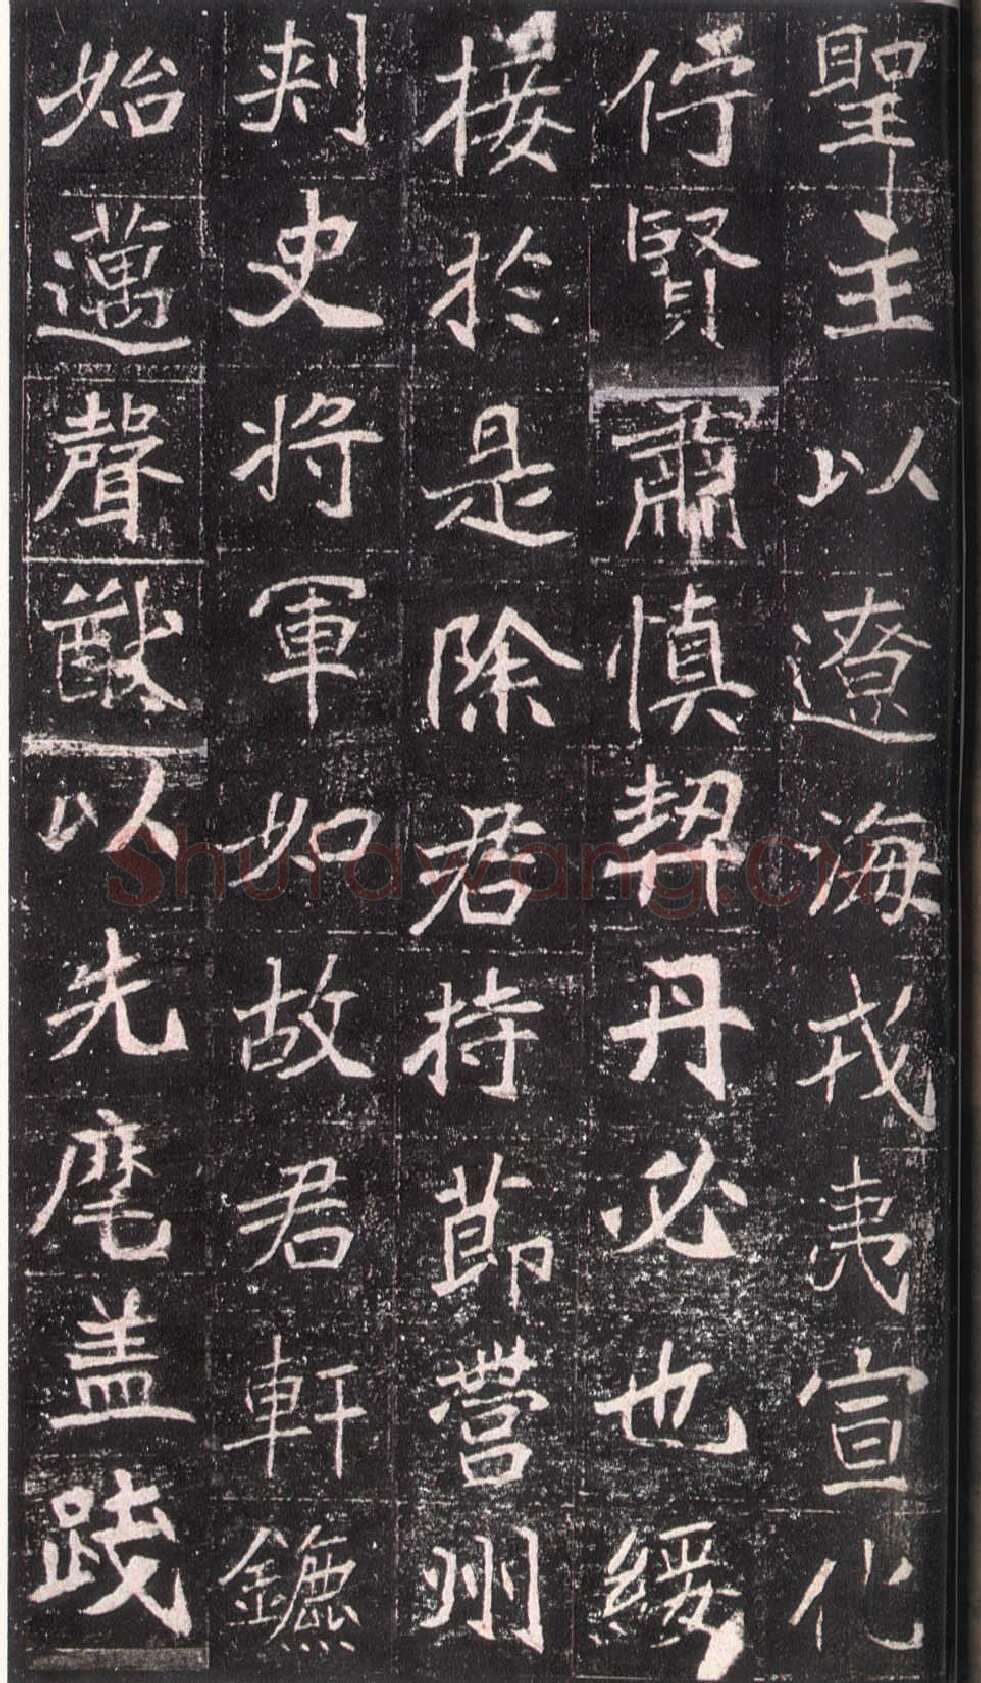 聖主以遼海戎夷宣化
佇賢肅慎契丹必也綏
接於是除君持節營州
刾史將軍如故君軒鑣
始邁聲猷以先麾盖踐
Shufawang.CN